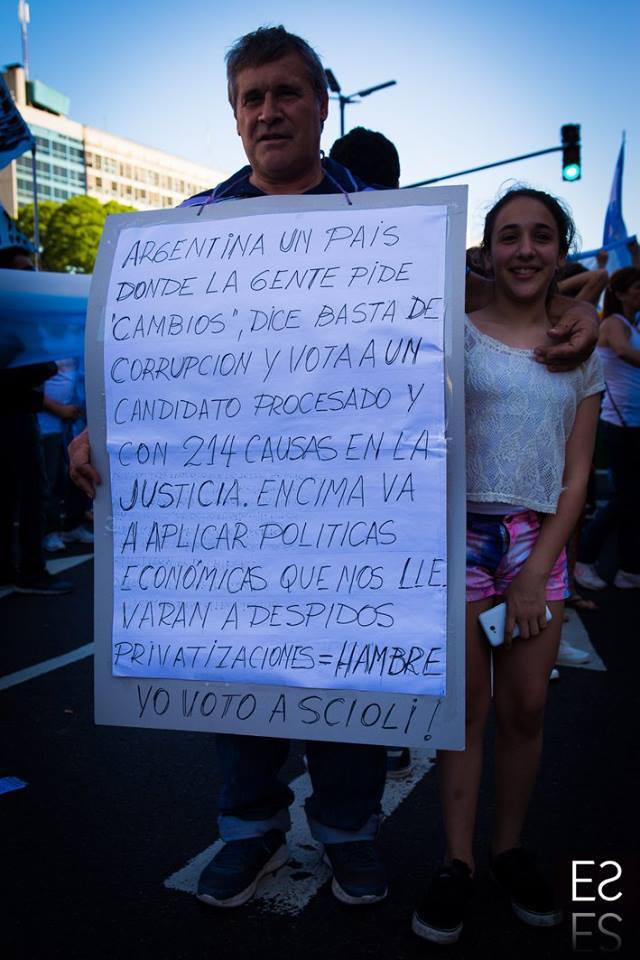 ARGENTINA UN PAIS
DONDE LA GENTE PIDE
"CAMBIOS", DICE BASTA DE
CORRUPCION Y VOTA A UN
CANDIDATO PROCESADO Y
CON 214 CAUSAS EN LA
JUSTICIA. ENCIMA VA
A APLICAR POLITICAS
ECONÓMICAS QUE NOS LLE
VARAN A DESPIDOS
PRIVATIZACIONES = HAMBRE
YO VOTO A SCIOLI!
ES